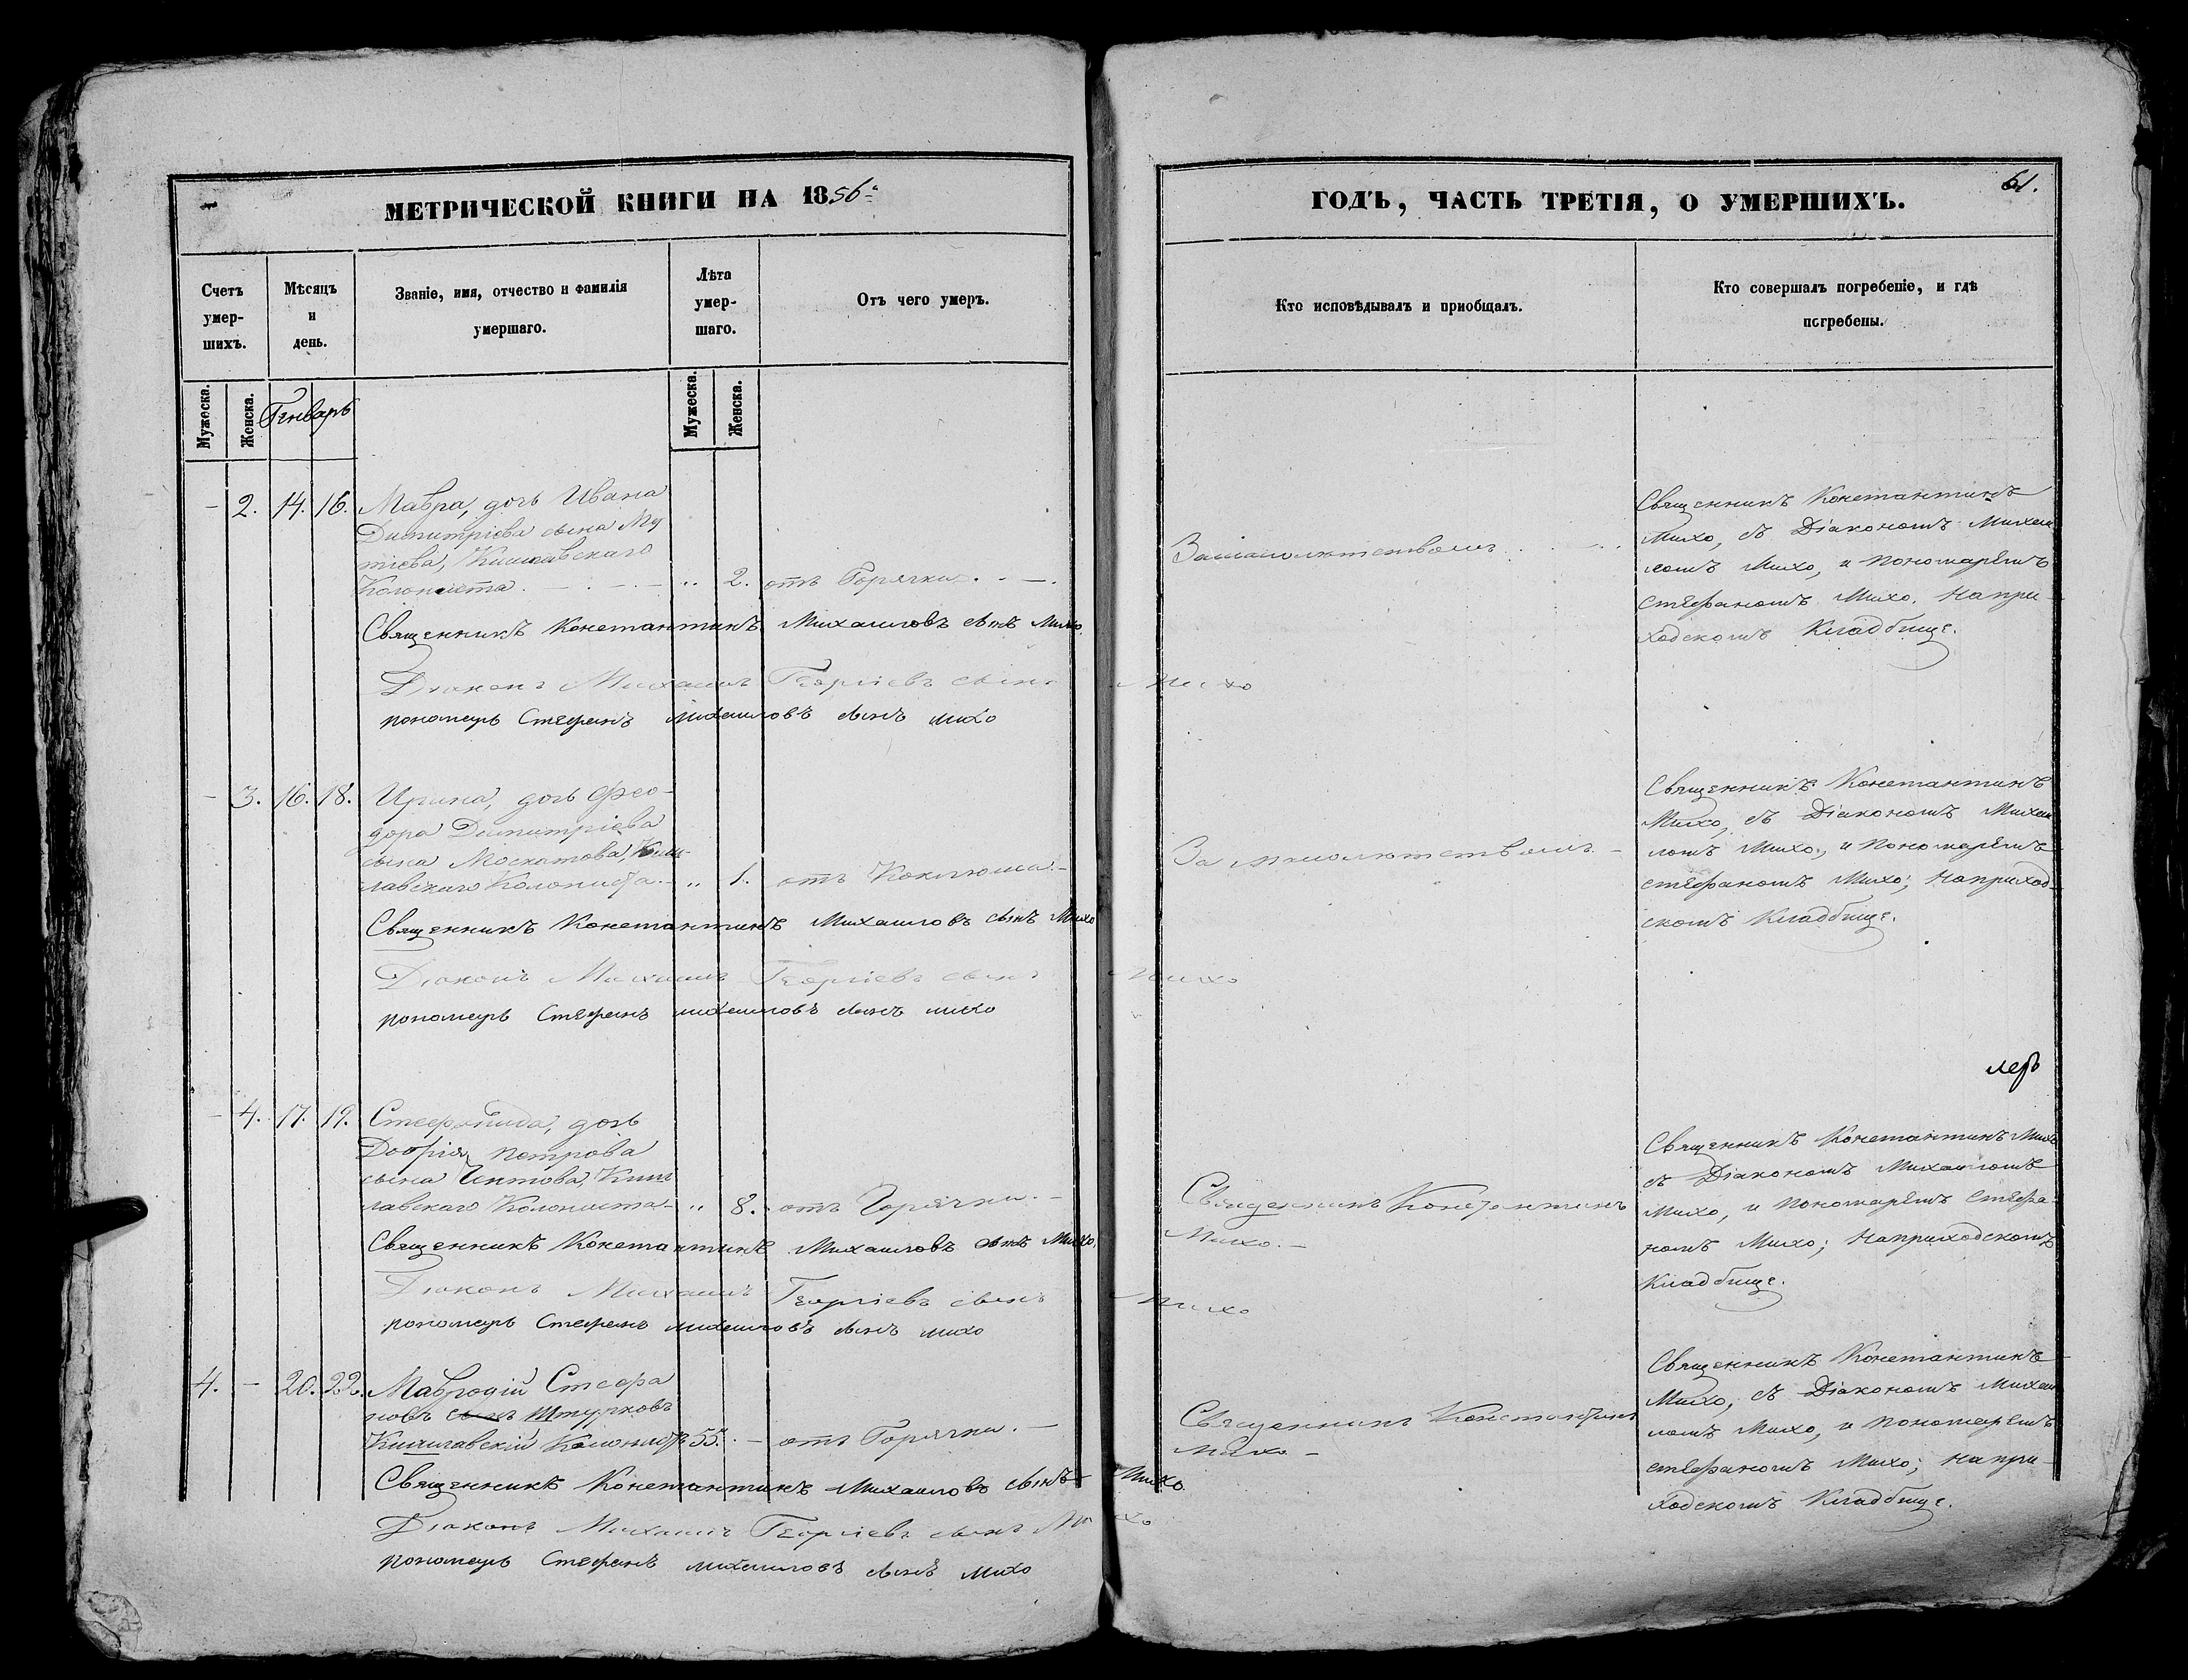 МЕТРИЧЕСКОЙ КНИГИ НА 1856
Счетъ умер-шихъ.
Мѣсяцъ и день.
Званіе, имя, отчество и фамилія умершаго.
Лѣта умер-шаго.
Отъ чего умеръ.
Мужеска.
Женска.
Генварь
Мужеска.
Женска.
- 2. 14. 16. Мавра, дочь Ивана
Димитріева сына
Колониста. - „ 2. отъ Горячки. -
Священникъ Константинъ Михаиловъ сынъ Михо
Діаконъ Михаилъ Георгіевъ сынъ Михо
пономарь Стефанъ Михаиловъ сынъ Михо
- 3. 16. 18. Ирина, дочь Фео-
дора Димитріева
сына Москатова, Киш-
лавскаго Колониста. - „ 1. отъ Коклюша. -
Священникъ Константинъ Михаиловъ сынъ Михо
Діаконъ Михаилъ Георгіевъ сынъ Михо
пономарь Стефанъ Михаиловъ сынъ Михо
- 4. 17. 19. дочь
Петрова
сына Киш
лавскаго Колониста - „ 8. отъ Горячки. -
Священникъ Константинъ Михаиловъ сынъ Михо.
Діаконъ Михаилъ Георгіевъ сынъ Михо
пономарь Стефанъ Михаиловъ сынъ Михо
4. - 20. 22. Мавродій Стефа
новъ сынъ Штурковъ
Кишлавскій Колонистъ 55. - отъ Горячки. -
Священникъ Константинъ Михаиловъ сынъ Михо
Діаконъ Михаилъ Георгіевъ сынъ Михо
пономарь Стефанъ Михаиловъ сынъ Михо
ГОДЪ, ЧАСТЬ ТРЕТІЯ, О УМЕРШИХЪ.
61.
Кто исповѣдывалъ и приобщалъ.
Кто совершалъ погребеніе, и гдѣ погребены.
За малолѣтствомъ
Священникъ Константинъ
Михо, съ Діакономъ Михаи
ломъ Михо, и пономарёмъ
Стефаномъ Михо, на при-
ходскомъ Кладбище.
За малолѣтствомъ -
Священникъ Константинъ
Михо, съ Діакономъ Михаи
ломъ Михо, и пономарёмъ
Стефаномъ Михо; на приход-
скомъ Кладбище.
Священникъ Константинъ
Михо. -
Священникъ Константинъ Михо
съ Діакономъ Михаиломъ
Михо, и пономарёмъ Стефа-
номъ Михо; на приходскомъ
Кладбище.
Священникъ Константинъ
Михо -
Священникъ Константинъ
Михо, съ Діакономъ Михаи
ломъ Михо, и пономарёмъ
Стефаномъ Михо; на при-
ходскомъ Кладбище.